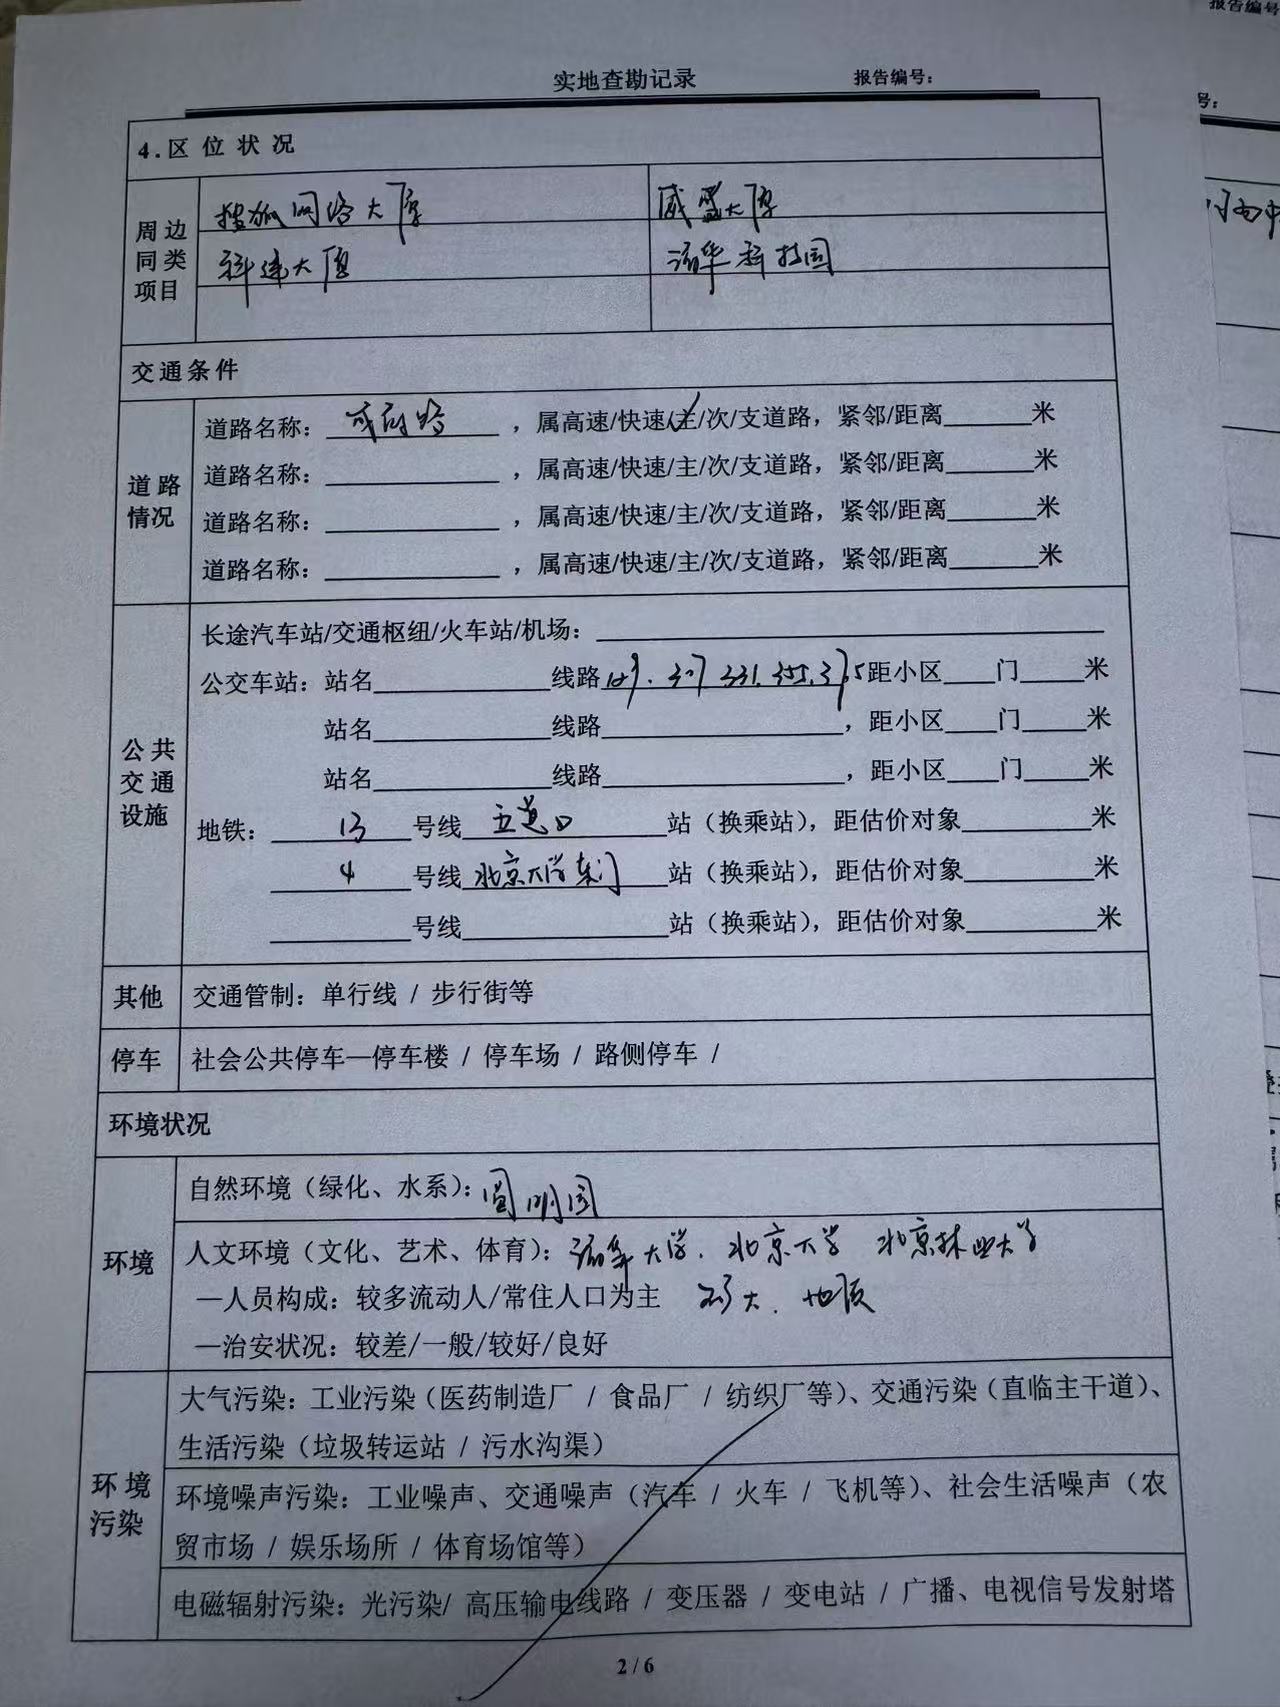 报告编号
号：
实地查勘记录 报告编号：
4.区位状况
周边同类项目
搜狐网络大厦 威盛大厦
科建大厦 清华科技园
交通条件
道路情况
道路名称：成府路，属高速/快速/主/次/支道路，紧邻/距离____米
道路名称：____，属高速/快速/主/次/支道路，紧邻/距离____米
道路名称：____，属高速/快速/主/次/支道路，紧邻/距离____米
道路名称：____，属高速/快速/主/次/支道路，紧邻/距离____米
公共交通设施
长途汽车站/交通枢纽/火车站/机场：____
公交车站：站名____线路 307 331. 355. 375距小区____门____米
站名____线路____，距小区____门____米
站名____线路____，距小区____门____米
地铁：13号线五道口站（换乘站），距估价对象____米
4号线北京大学东门站（换乘站），距估价对象____米
____号线____站（换乘站），距估价对象____米
其他 交通管制：单行线 / 步行街等
停车 社会公共停车—停车楼 / 停车场 / 路侧停车 /
环境状况
环境
自然环境（绿化、水系）：圆明园
人文环境（文化、艺术、体育）：清华大学. 北京大学 北京林业大学
—人员构成：较多流动人/常住人口为主 大. 地质
—治安状况：较差/一般/较好/良好
环境污染
大气污染：工业污染（医药制造厂 / 食品厂 / 纺织厂等）、交通污染（直临主干道）、
生活污染（垃圾转运站 / 污水沟渠）
环境噪声污染：工业噪声、交通噪声（汽车 / 火车 / 飞机等）、社会生活噪声（农
贸市场 / 娱乐场所 / 体育场馆等）
电磁辐射污染：光污染/ 高压输电线路 / 变压器 / 变电站 / 广播、电视信号发射塔
2 / 6